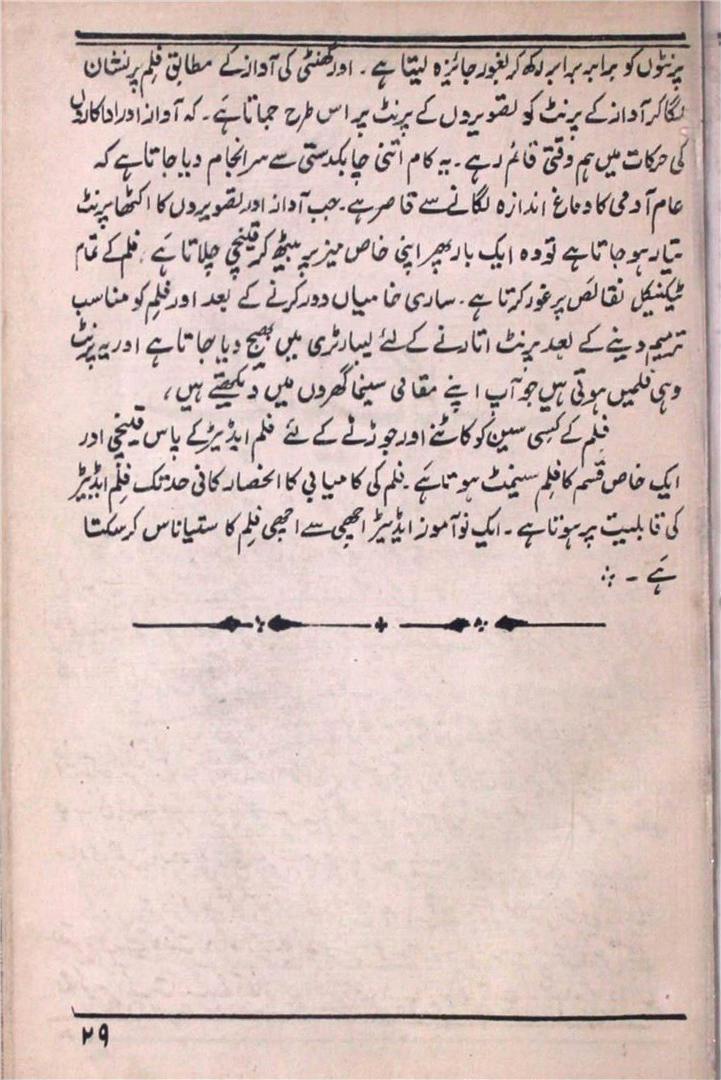 پرنٹوں کو برابر برابر رکھ کر بغور جائزہ لیتا ہے ۔ اور گھنٹی کی آواز کے مطابق فلم پر نشان
لگا کر آواز کے پرنٹ کو تصویروں کے پرنٹ پر اس طرح جماتا ہے ۔ کہ آواز اور اداکاروں
کی حرکات میں ہم وقتی قائم رہے ۔ یہ کام اتنی چابکدستی سے سرانجام دیا جاتا ہے کہ
عام آدمی کا دماغ اندازہ لگانے سے قاصر ہے ۔ جب آواز اور تصویروں کا اکٹھا پرنٹ
تیار ہو جاتا ہے تو وہ ایک بار پھر اپنی خاص میز پر بیٹھ کر قینچی چلاتا ہے ، فلم کے تمام
ٹیکنیکل نقائص پر غور کرتا ہے ۔ ساری خامیاں دور کرنے کے بعد اور فلم کو مناسب
ترمیم دینے کے بعد پرنٹ اتارنے کے لئے لیبارٹری میں بھیج دیا جاتا ہے اور یہ پرنٹ
وہی فلمیں ہوتی ہیں جو آپ اپنے مقامی سینما گھروں میں دیکھتے ہیں ،
فلم کے کسی سین کو کاٹنے اور جوڑنے کے لئے فلم ایڈیٹر کے پاس قینچی اور
ایک خاص قسم کا فلم سیمنٹ ہوتا ہے ۔ فلم کی کامیابی کا انحصار کافی حد تک فلم ایڈیٹر
کی قابلیت پر ہوتا ہے ۔ ایک نوآموز ایڈیٹر اچھی سے اچھی فلم کا ستیاناس کر سکتا
ہے ۔
۲۹